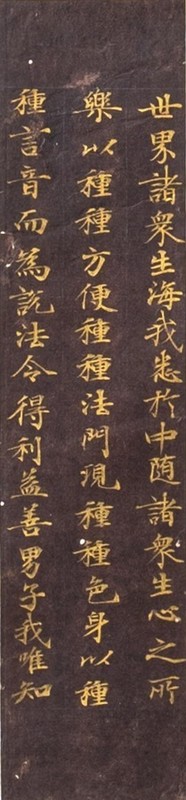 世界諸衆生海我悉於中随諸衆生心之所
樂以種種方便種種法門現種種色身以種
種言音而為說法令得利益善男子我唯知